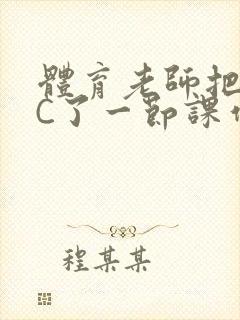 體育老師把
C了一節課
程某某